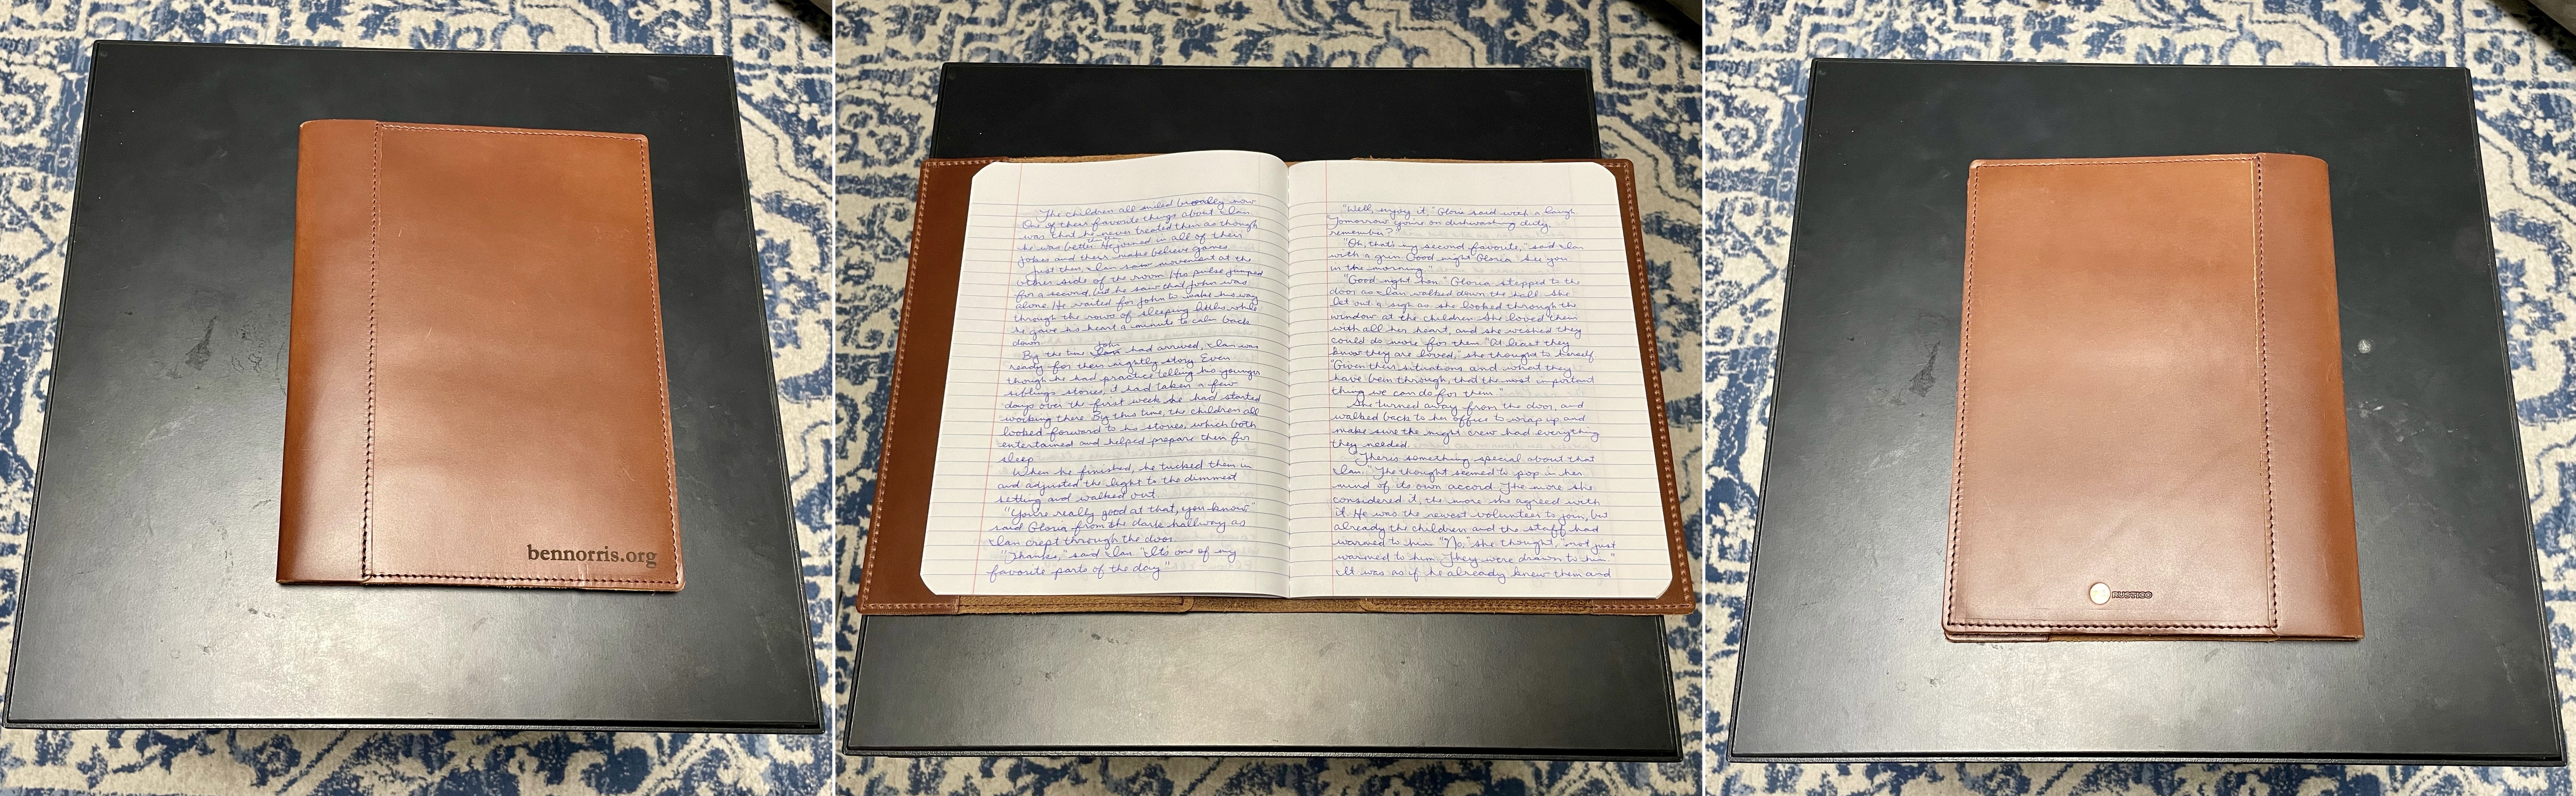 bennorris.org
The children all smiled broadly now
One of their favorite things about Ian
was that he never treated them as though
he was better. He joined in all of their
jokes and their make believe games
Just then, Ian saw movement at the
other side of the room. His pulse jumped
for a second, but he saw that John was
alone. He waited for John to make his way
through the rows of sleeping littles while
he gave his heart a minute to calm back
down.
John
By the time Ian had arrived, Ian was
ready for their nightly story. Even
though he had practice telling his younger
siblings stories, it had taken a few
days over the first week he had started
working there. By this time, the children all
looked forward to his stories, which both
entertained and helped prepare them for
sleep.
When he finished, he tucked them in
and adjusted the light to the dimmest
setting and walked out
"You're really good at that, you know"
said Gloria from the dark hallway as
Ian crept through the door.
"Thanks," said Ian. "It's one of my
favorite parts of the day"
"Well, enjoy it," Gloria said with a laugh.
"Tomorrow you're on dishwashing duty,
remember?"
"Oh, that's my second favorite," said Ian
with a grin. Good night Gloria. See you
in the morning."
"Good night hon." Gloria stepped to the
door as Ian walked down the hall. She
let out a sigh as she looked through the
window at the children. She loved them
with all her heart, and she wished they
could do more for them. "At least they
know they are loved," she thought to herself.
"Given their situations and what they
have been through, that the most important
thing we can do for them."
She turned away from the door, and
walked back to her office to wrap up and
make sure the night crew had everything
they needed.
"There's something special about that
Ian." The thought seemed to pop in her
mind of its own accord. The more she
considered it, the more she agreed with
it. He was the newest volunteer to join, but
already the children and the staff had
warmed to him. "No," she thought, "not just
warmed to him. They were drawn to him."
It was as if he already knew them and
RUSTICO